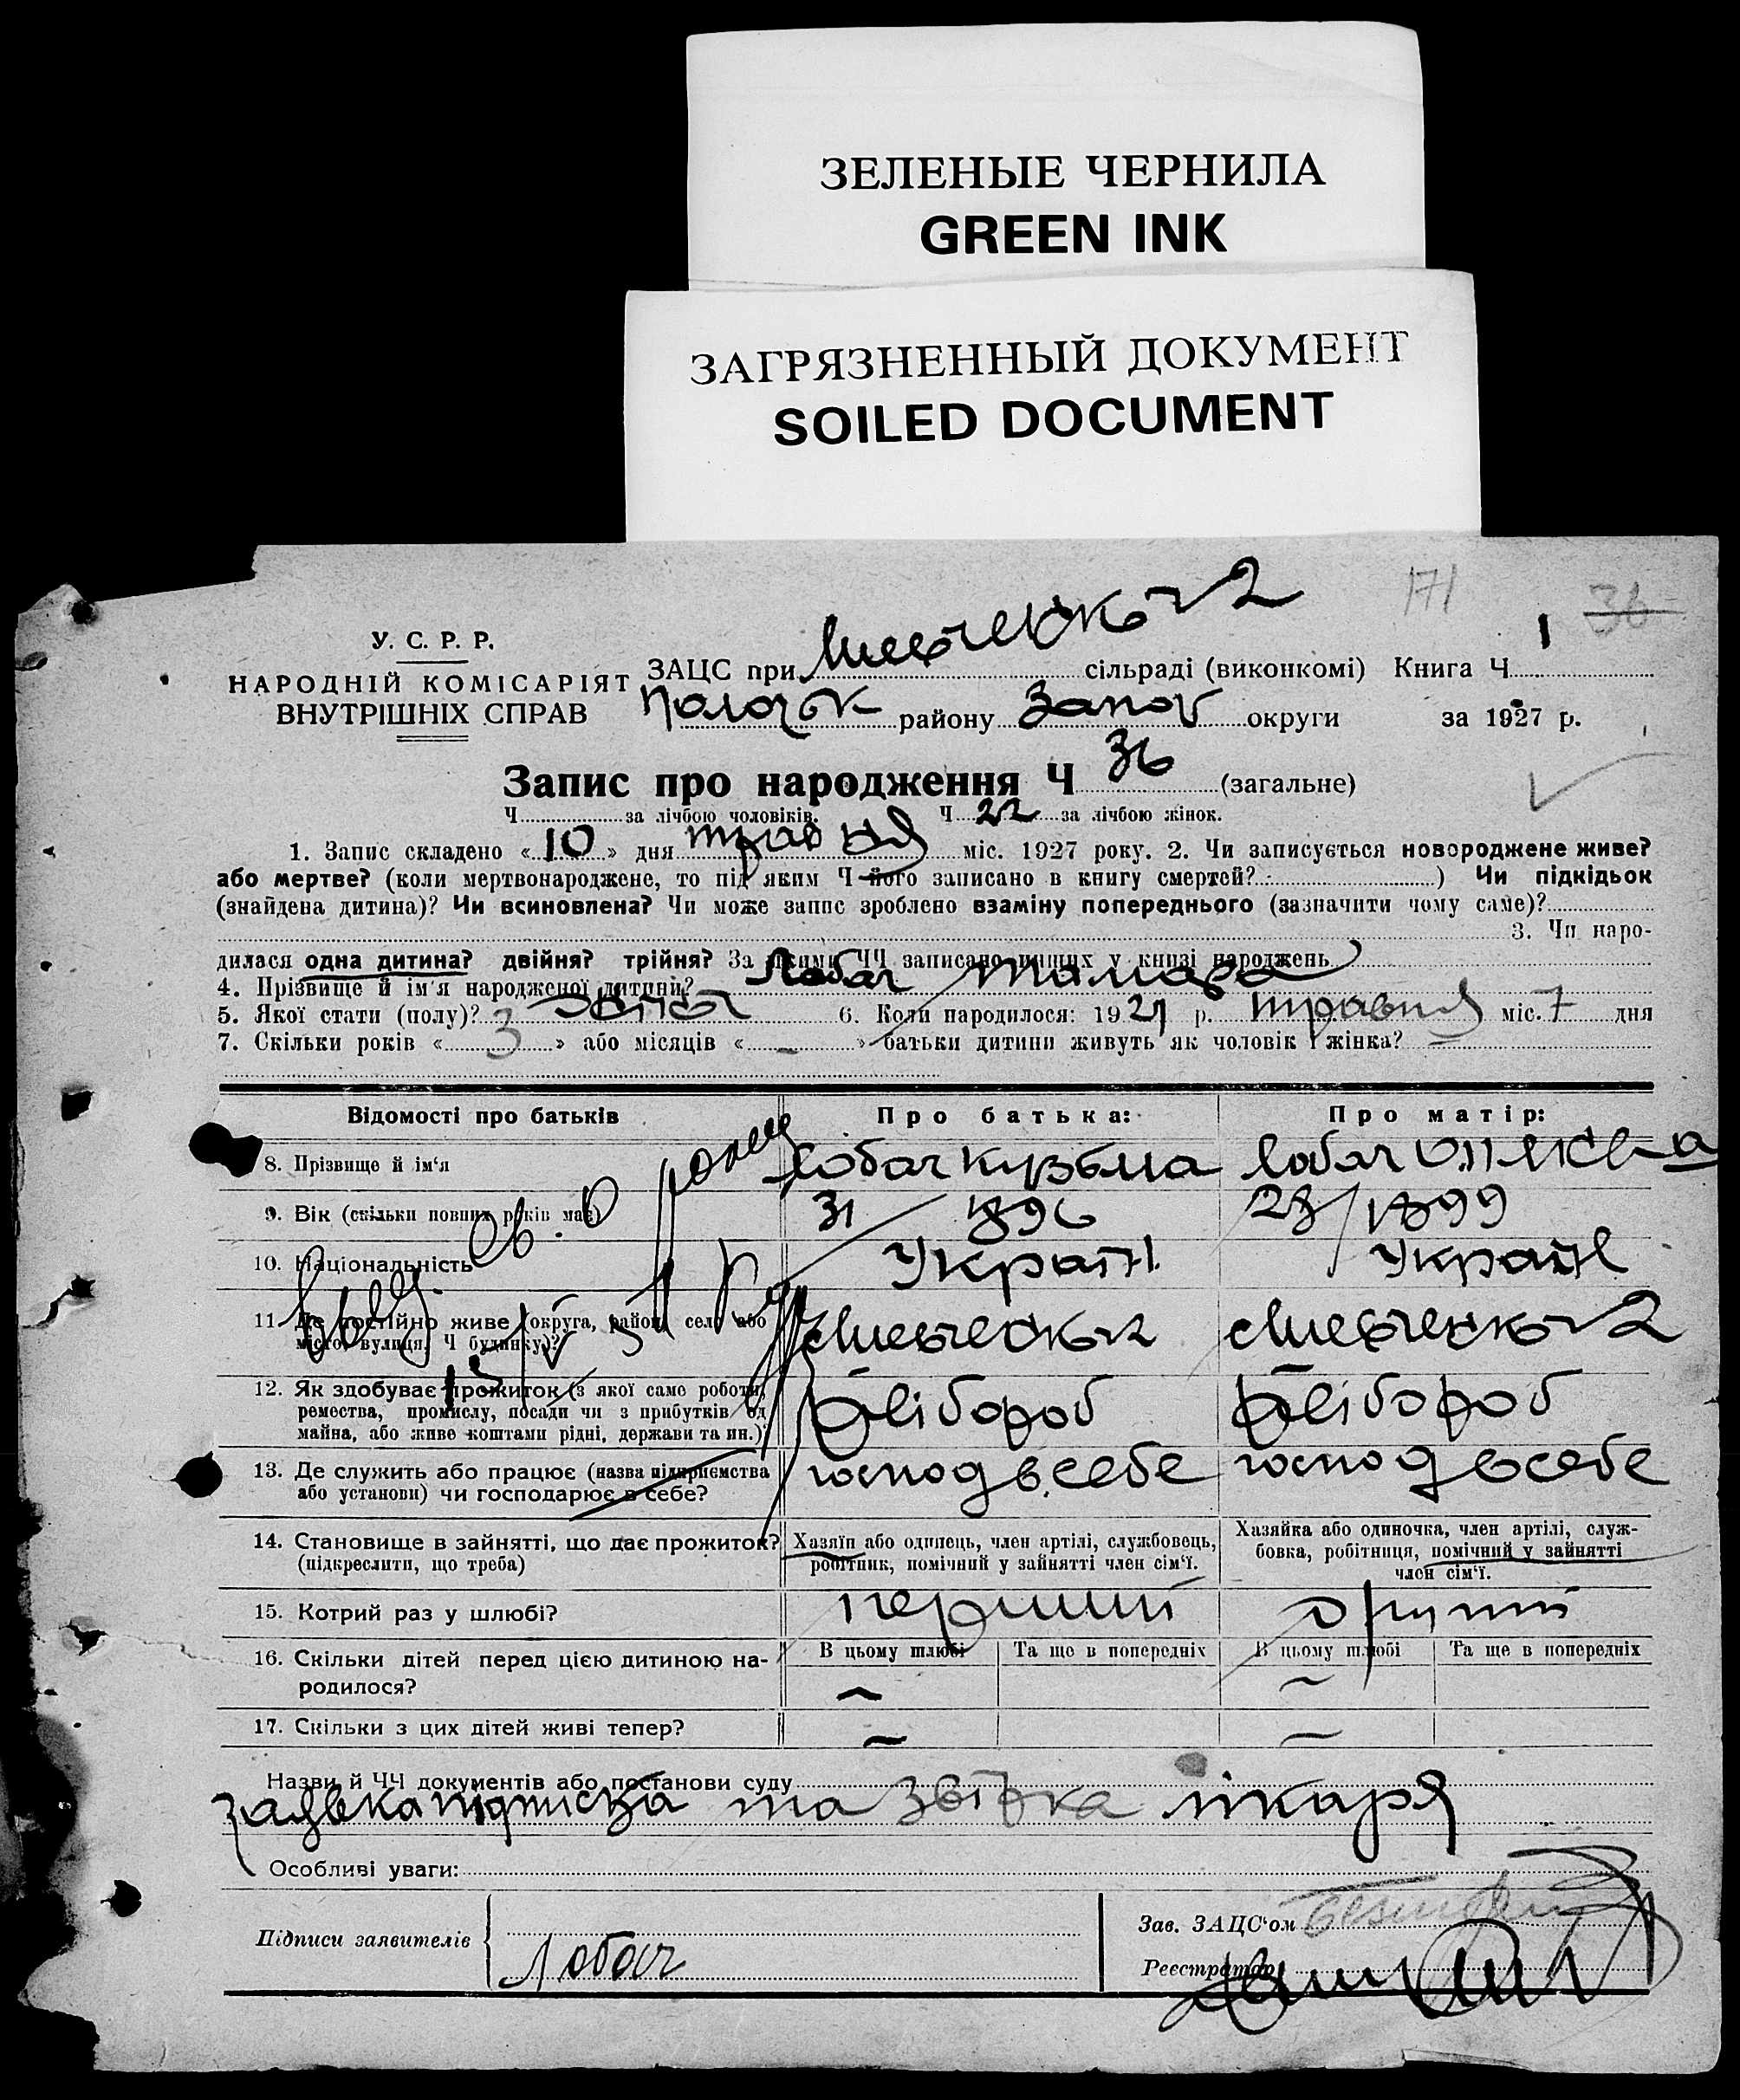 ЗЕЛЕНЫЕ ЧЕРНИЛА
GREEN INK
ЗАГРЯЗНЕННЫЙ ДОКУМЕНТ
SOILED DOCUMENT
171 36
У. С. Р. Р.
НАРОДНІЙ КОМІСАРІЯТ
ВНУТРІШНІХ СПРАВ
ЗАЦС при сільраді (виконкомі) Книга Ч. 1
району Запор округи за 1927 р.
Запис про народження Ч 36 (загальне)
Ч. за лічбою чоловіків. Ч. 22 за лічбою жінок.
1. Запис складено «10» дня травня міс. 1927 року. 2. Чи записується новороджене живе?
або мертве? (коли мертвонароджене, то під яким Ч його записано в книгу смертей? ) Чи підкідьок
(знайдена дитина)? Чи всиновлена? Чи може запис зроблено взаміну попереднього (зазначити чому саме)?
3. Чи наро-
дилася одна дитина? двійня? трійня? За якими ЧЧ записано інших у книзі народжень
4. Прізвище й ім'я народженої дитини? Лобач Тамара
5. Якої стати (полу)? жіноч 6. Коли народилося: 1927 р. травня міс. 7 дня
7. Скільки років « 3 » або місяців « – » батьки дитини живуть як чоловік і жінка? –
Відомості про батьків Про батька: Про матір:
8. Прізвище й ім'я Лобач Кузьма Лобач
9. Вік (скільки повних років має) 31/1896 28/1899
10. Національність Україн. Україн
11. Де постійно живе (округа, район, село або
місто, вулиця, Ч будинку)?
12. Як здобуває прожиток (з якої само роботи,
ремества, промислу, посади чи з прибутків од
майна, або живе коштами рідні, держави та ин.)? хлібороб хлібороб
13. Де служить або працює (назва підприємства
або установи) чи господарює в себе? господ в себе господ в себе
14. Становище в зайнятті, що дає прожиток?
(підкреслити, що треба)
Хазяїн або одинець, член артілі, службовець,
робітник, помічний у зайнятті член сім'ї.
Хазяйка або одиночка, член артілі, служ-
бовка, робітниця, помічний у зайнятті
член сім'ї.
15. Котрий раз у шлюбі? перший другий
16. Скільки дітей перед цією дитиною на-
родилося?
В цьому шлюбі Та ще в попередніх В цьому шлюбі Та ще в попередніх
– –
17. Скільки з цих дітей живі тепер? – –
Назви й ЧЧ документів або постанови суду
заявка підписка та звістка лікаря
Особливі уваги:
Підписи заявителів Лобач
Зав. ЗАЦС'ом
Реєстратор